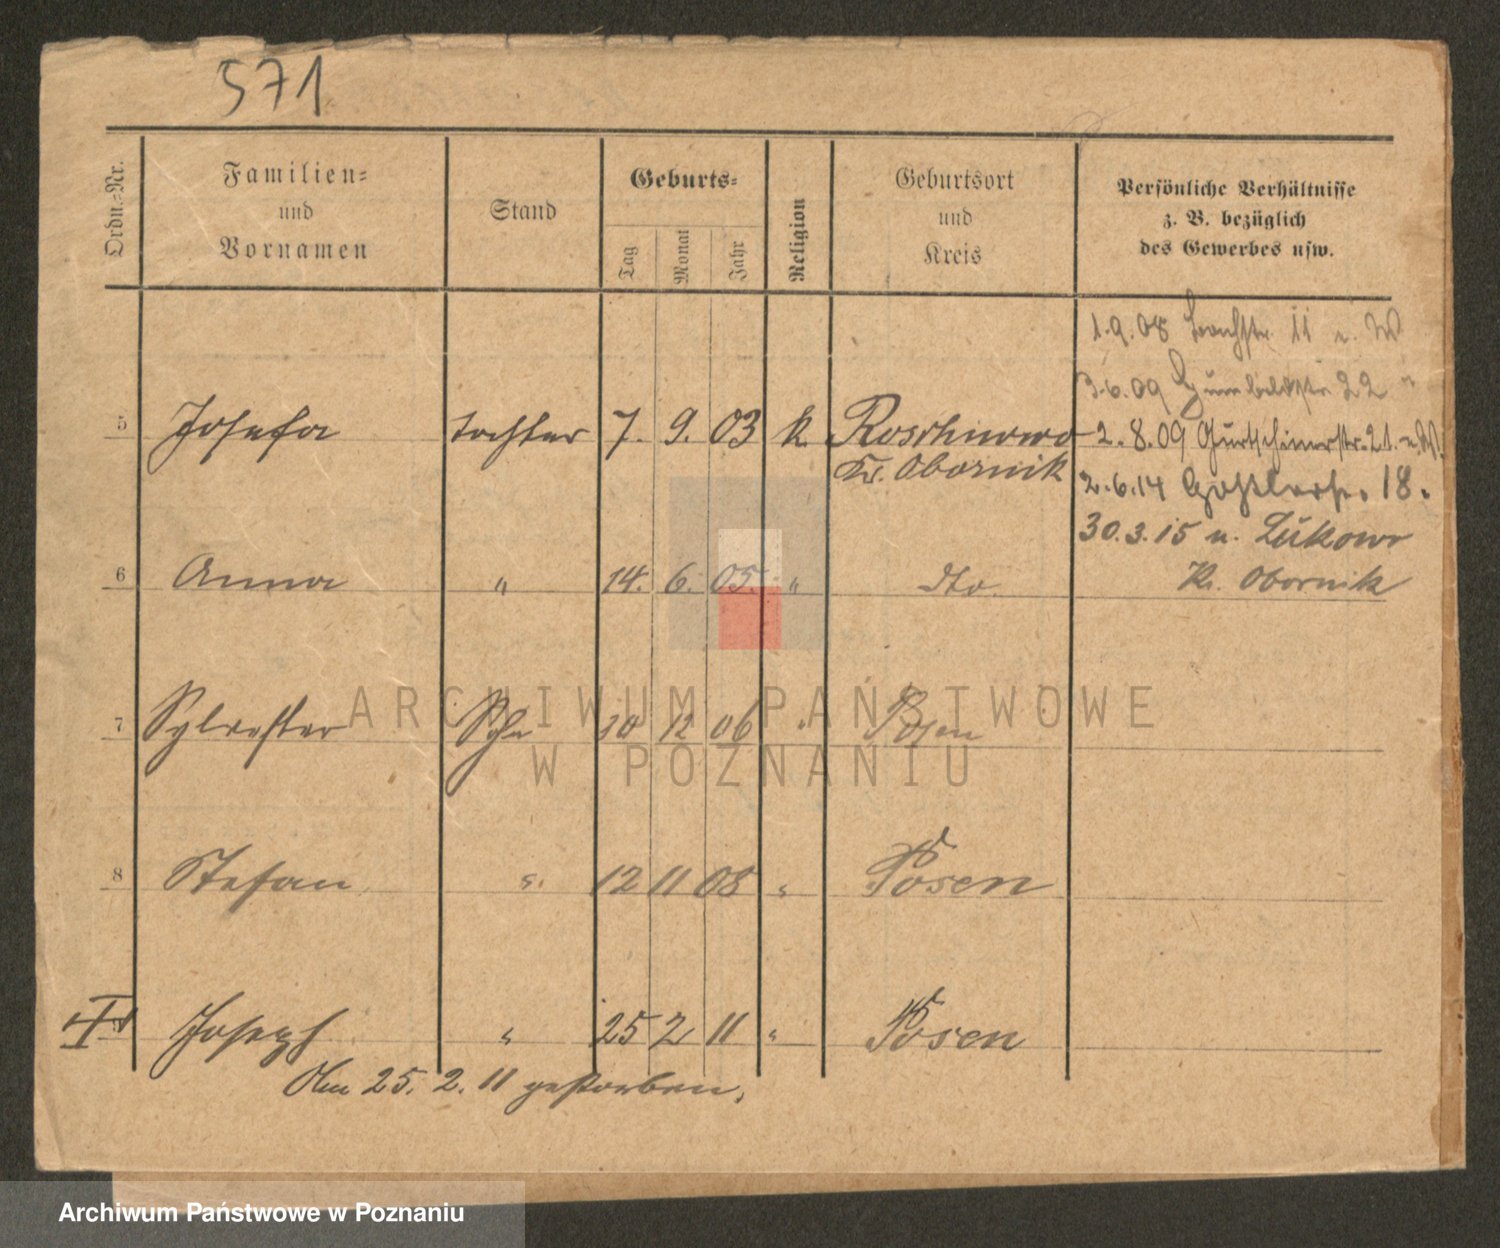 571
Ordn.-Nr.
Familien-
und
Vornamen
Stand
Geburts-
Tag
Monat
Jahr
Religion
Geburtsort
und
Kreis
Persönliche Verhältnisse
z. B. bezüglich
des Gewerbes usw.
1.9.08 11 n. W
3.6.09 Humboldtstr 22 "
5 Josefa Tochter 7. 9. 03 k. Roschnowo
Kr. Obornik
2.8.09 Gurtschinerstr. 21. n. W.
2.6.14 18.
30.3.15 n. Lukowo
Kr. Obornik
6 Anna " 14. 6. 05. " dto.
7 Sylvester Sohn 10 12 06 " Posen
8 Stefan " 12 11 08 " Posen
9 Joseph " 25 2 11 " Posen
Am 25. 2. 11 gestorben.
ARCHIWUM PAŃSTWOWE
W POZNANIU
Archiwum Państwowe w Poznaniu